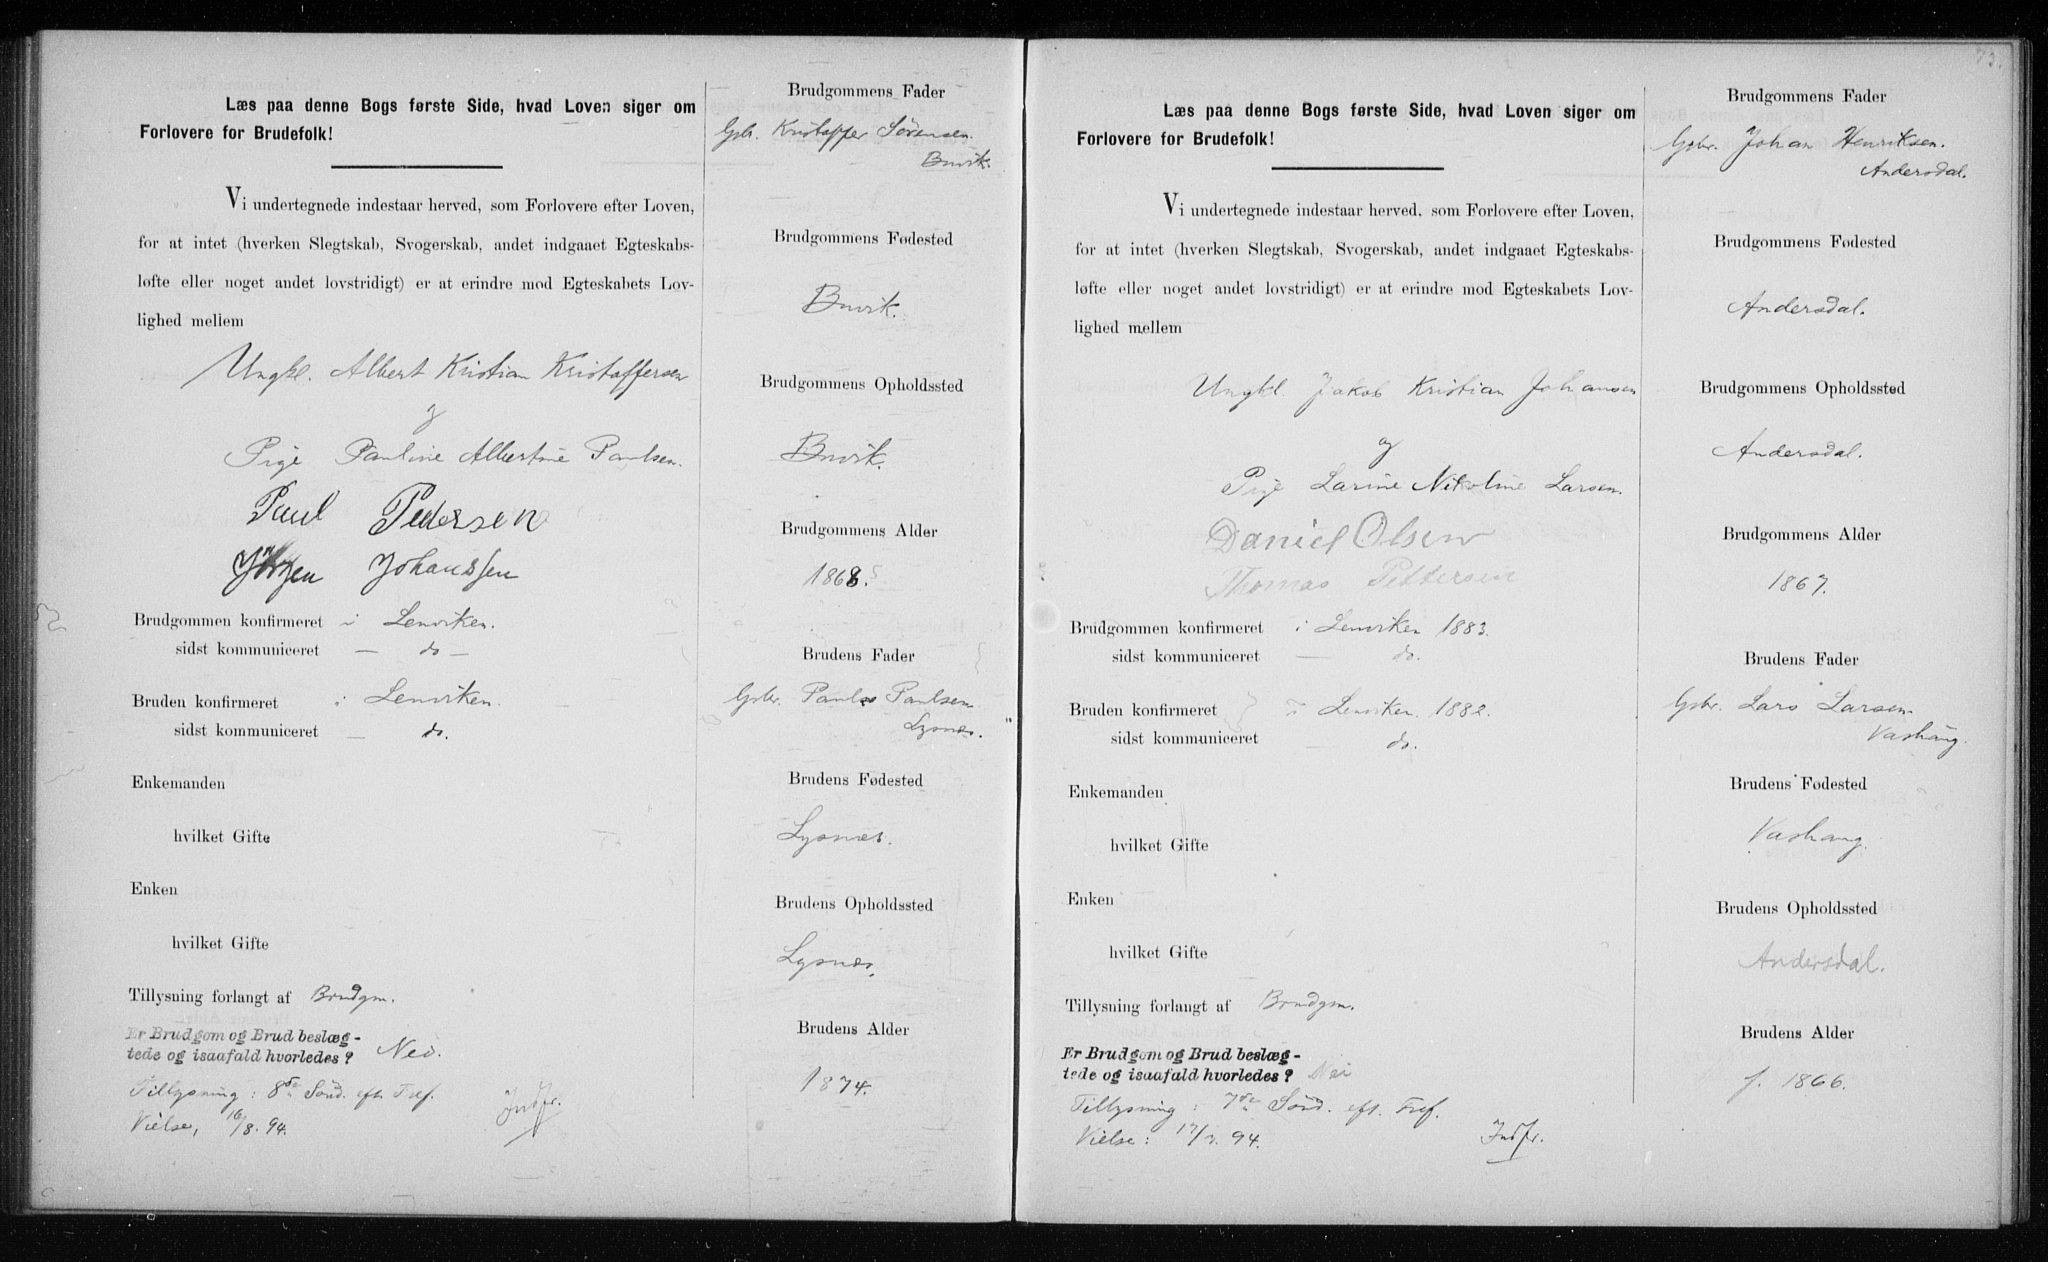 Læs paa denne Bogs første Side, hvad Loven siger om
Forlovere for Brudefolk!
Vi undertegnede indestaar herved, som Forlovere efter Loven,
for at intet (hverken Slegtskab, Svogerskab, andet indgaaet Egteskabs-
løfte eller noget andet lovstridigt) er at erindre mod Egteskabets Lov-
lighed mellem
Ungkl. Albert Kristian Kristoffersen
og
Pige Pauline Albertine Paulsen.
Paul Pedersen
Jörgen Johanssen
Brudgommen konfirmeret i Lenviken.
sidst kommuniceret — do —
Bruden konfirmeret i Lenviken.
sidst kommuniceret — do.
Enkemanden
hvilket Gifte
Enken
hvilket Gifte
Tillysning forlangt af Brudgm.
Er Brudgom og Brud beslæg-
tede og isaafald hvorledes? Nei.
Tillysning: 8de Sönd. eft. Tref.
Vielse, 16/8. 94. Indfr.
Brudgommens Fader
Gbr. Kristoffer Sörensen.
Buvik.
Brudgommens Fødested
Buvik.
Brudgommens Opholdssted
Buvik.
Brudgommens Alder
1868.
Brudens Fader
Gbr. Paul Paulsen
Lysnes.
Brudens Fødested
Lysnes.
Brudens Opholdssted
Lysnes.
Brudens Alder
1874.
73.
Læs paa denne Bogs første Side, hvad Loven siger om
Forlovere for Brudefolk!
Vi undertegnede indestaar herved, som Forlovere efter Loven,
for at intet (hverken Slegtskab, Svogerskab, andet indgaaet Egteskabs-
løfte eller noget andet lovstridigt) er at erindre mod Egteskabets Lov-
lighed mellem
Ungkl. Jakob Kristian Johansen
og
Pige Larine Nikoline Larsen.
Daniel Olsen
Thomas Pettersen
Brudgommen konfirmeret i Lenviken 1883.
sidst kommuniceret — do.
Bruden konfirmeret i Lenviken. 1882.
sidst kommuniceret do.
Enkemanden
hvilket Gifte
Enken
hvilket Gifte
Tillysning forlangt af Brudgm.
Er Brudgom og Brud beslæg-
tede og isaafald hvorledes? Nei
Tillysning: 7de Sönd. eft. Tref.
Vielse: 94. Indfr.
Brudgommens Fader
Gbr. Johan Henriksen.
Andersdal.
Brudgommens Fødested
Andersdal.
Brudgommens Opholdssted
Andersdal.
Brudgommens Alder
1867.
Brudens Fader
Gbr. Lars Larsen
Vashaug.
Brudens Fødested
Vashaug.
Brudens Opholdssted
Andersdal.
Brudens Alder
f. 1866.